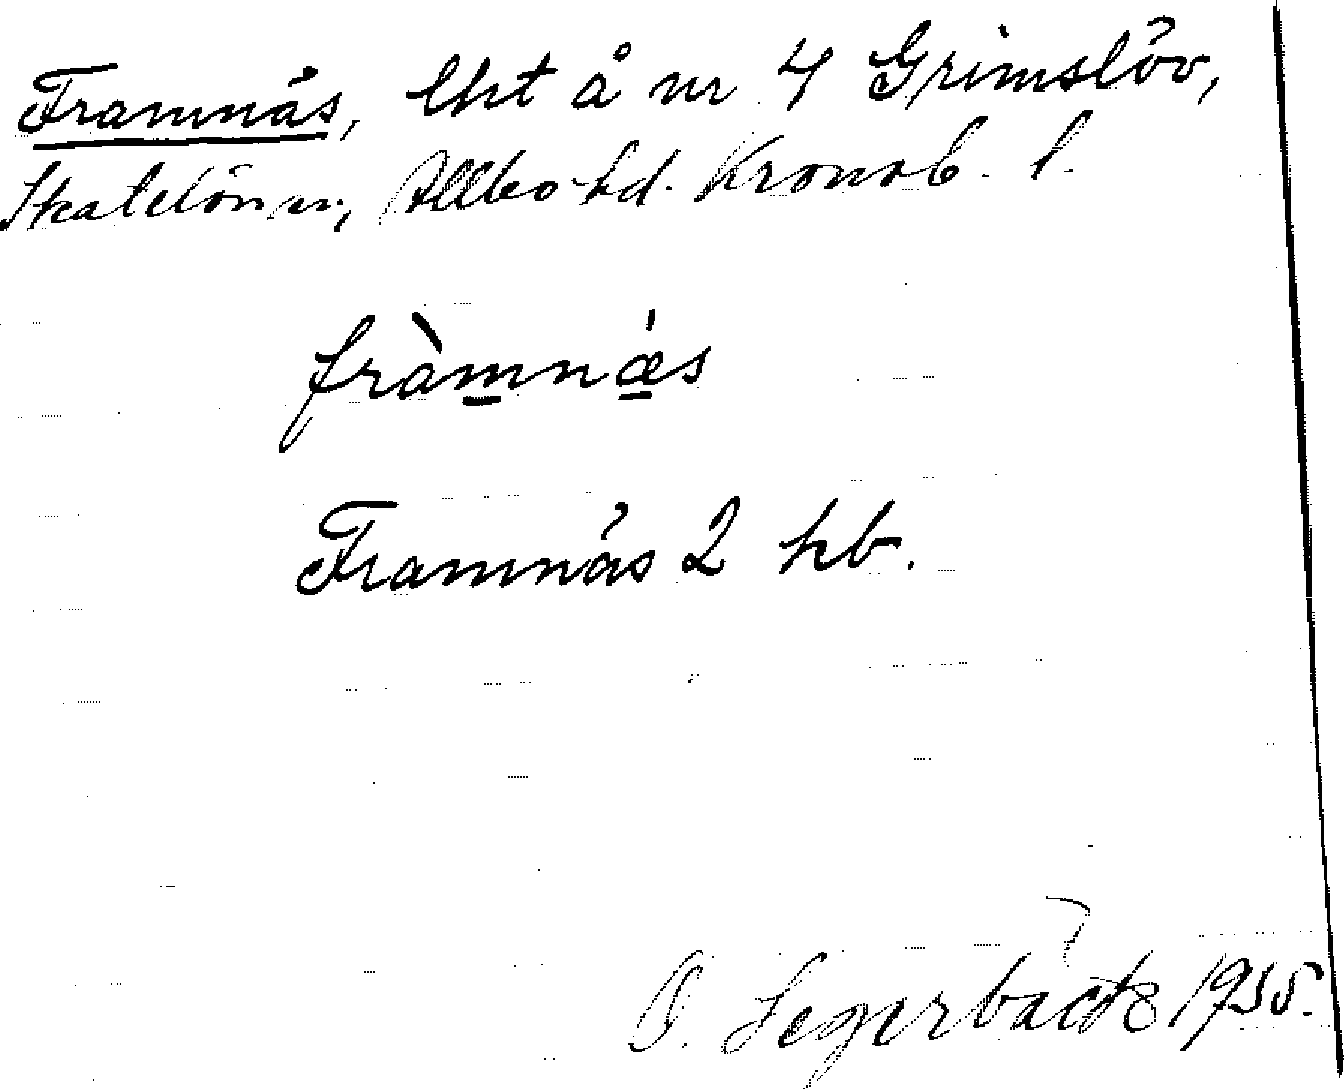 Framnäs, lht å nr 4 Grimslöv,
Skatelövs sn, Allbo hd. Kronob. l.
fràmnæ̀s
Framnäs 2 hb.
O. Segerbäck 1935.